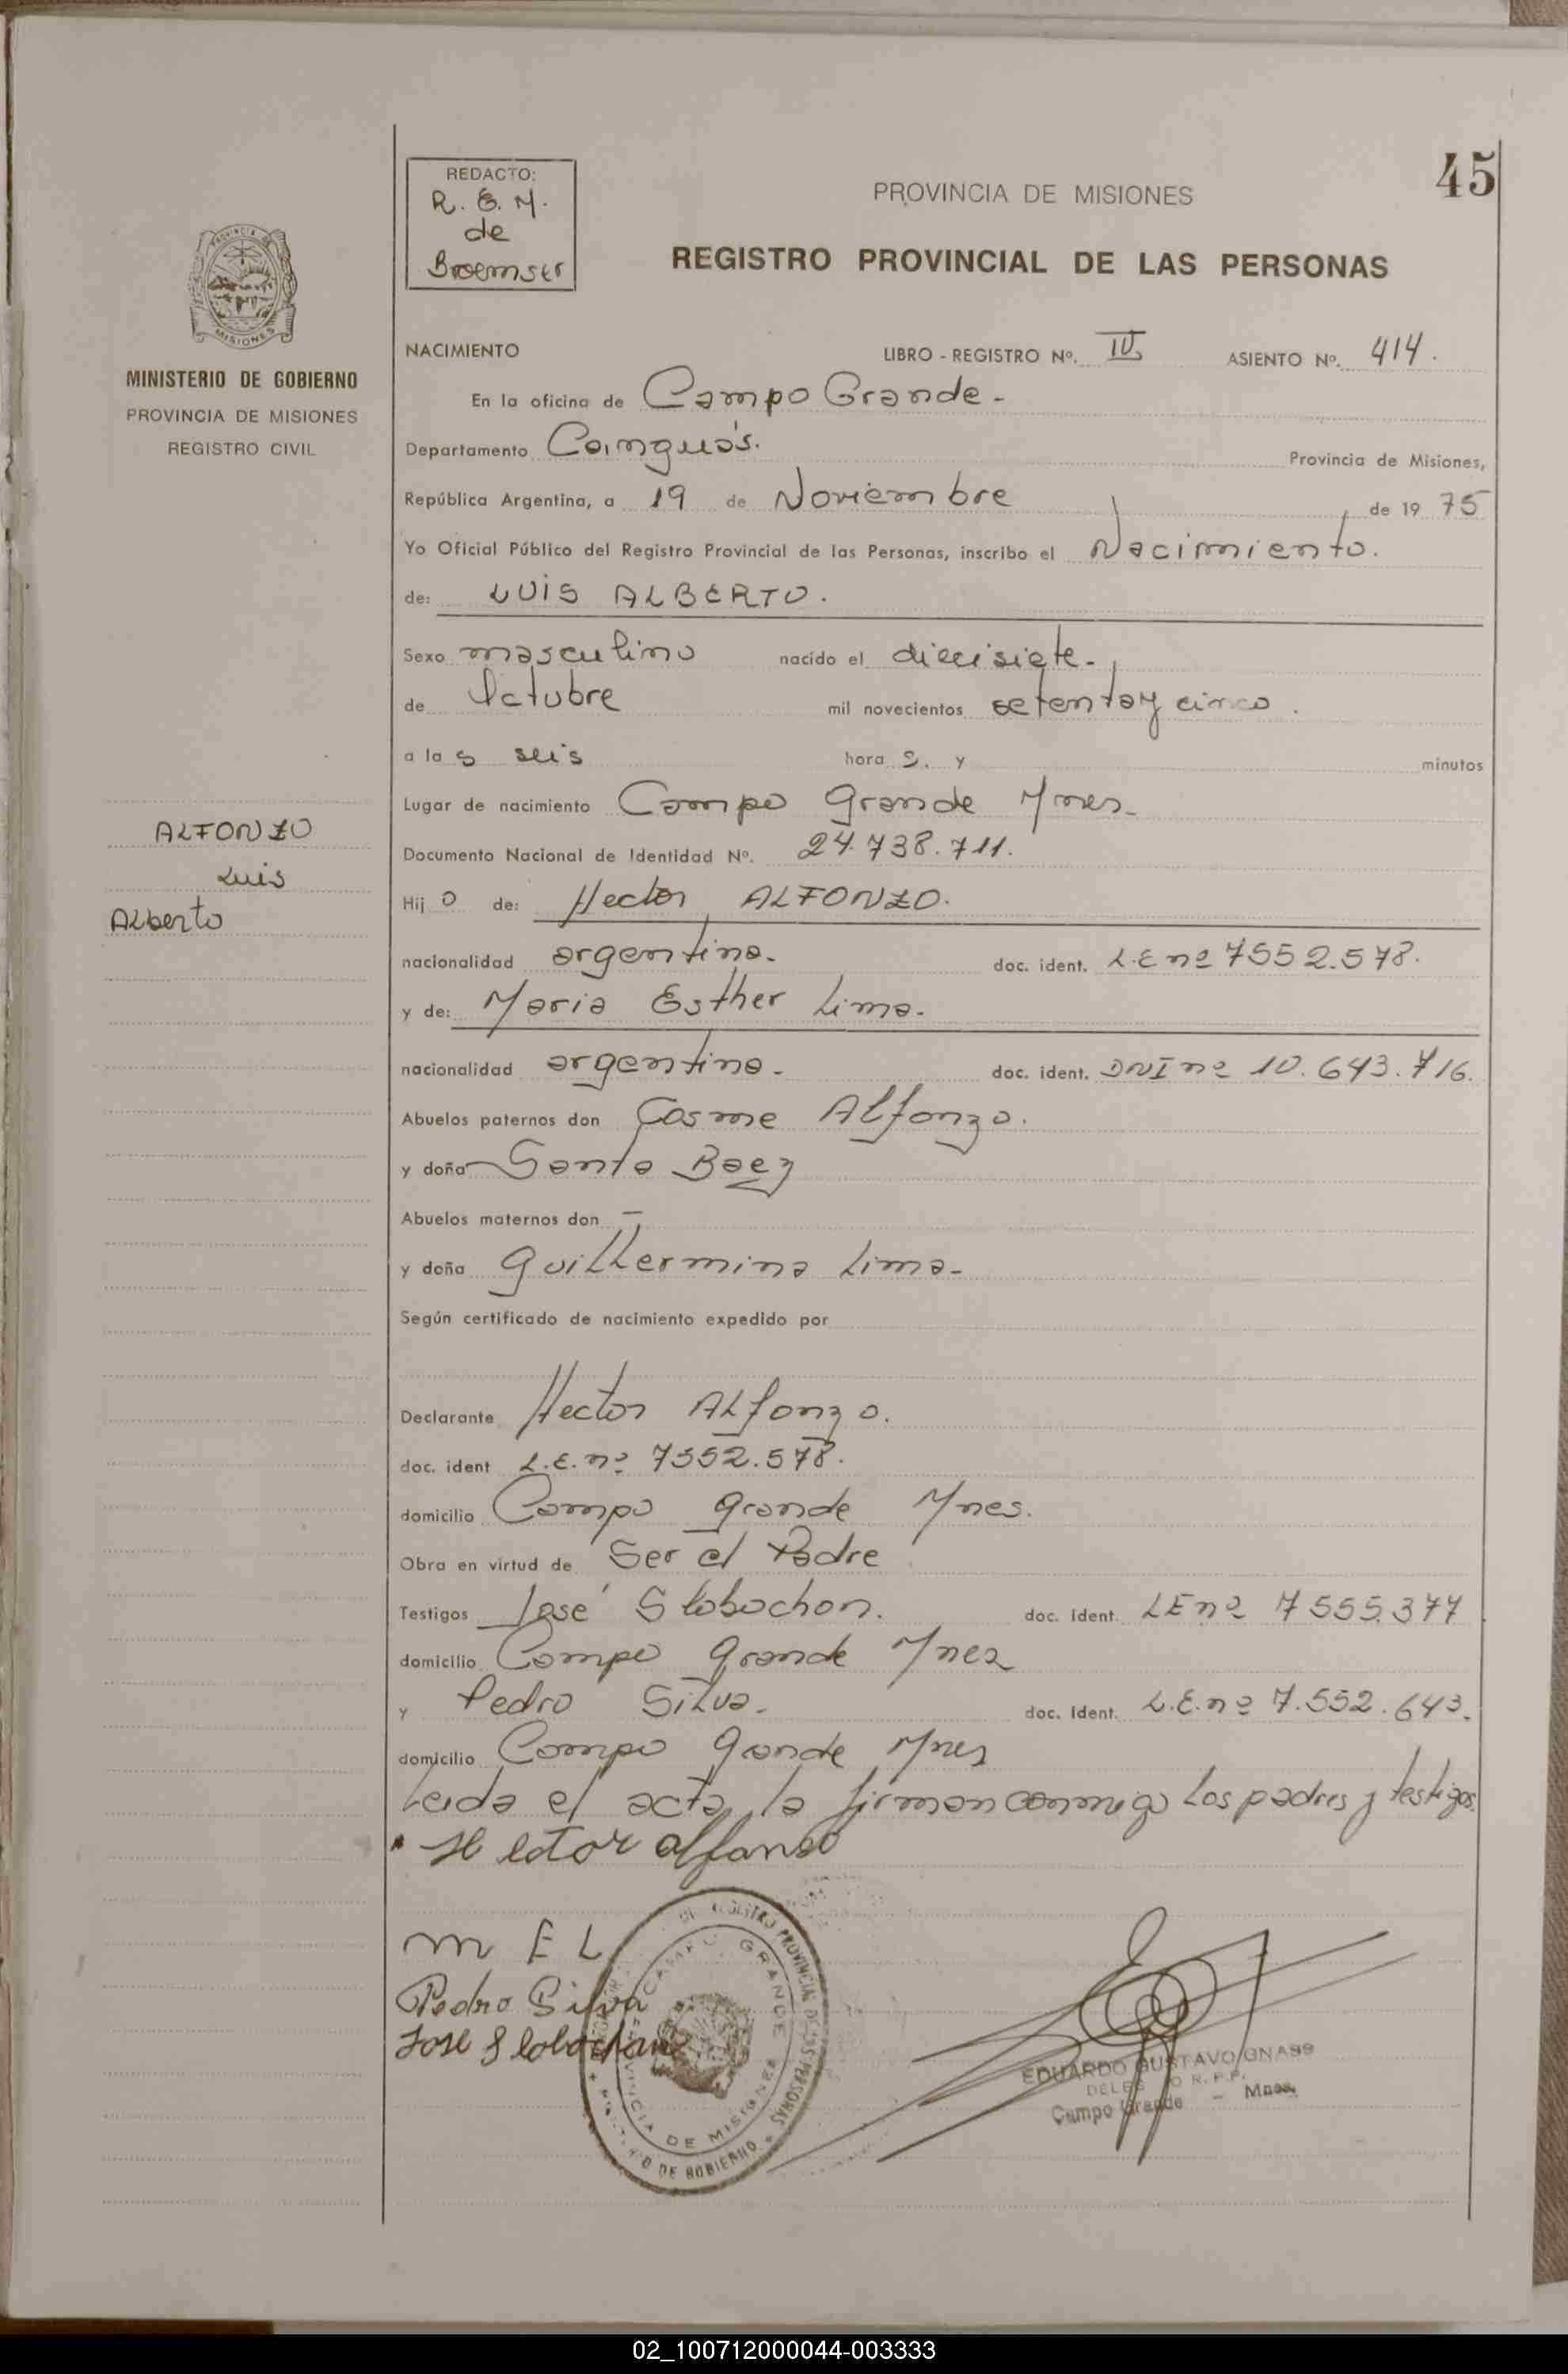 45
REDACTO:
R. E. M.
de
Broemser
PROVINCIA DE MISIONES
REGISTRO PROVINCIAL DE LAS PERSONAS
PROVINCIA DE
MISIONES
MINISTERIO DE GOBIERNO
PROVINCIA DE MISIONES
REGISTRO CIVIL
ALFONZO
Luis
Alberto
NACIMIENTO LIBRO - REGISTRO Nº. IV ASIENTO Nº. 414.
En la oficina de Campo Grande -
Departamento Cainguás. Provincia de Misiones,
República Argentina, a 19 de Noviembre de 19 75
Yo Oficial Público del Registro Provincial de las Personas, inscribo el Nacimiento.
de: LUIS ALBERTO.
Sexo masculino nacido el diecisiete -
de Octubre mil novecientos setenta y cinco.
a las seis horas. y minutos
Lugar de nacimiento Campo Grande Mnes-
Documento Nacional de Identidad Nº. 24.738.711.
Hijo de: Hector ALFONZO.
nacionalidad argentina- doc. ident. L.E nº 7552.578.
y de: Maria Esther Lima-
nacionalidad argentina- doc. ident. DNI nº 10.643.716.
Abuelos paternos don Cosme Alfonzo.
y doña Santa Baez
Abuelos maternos don -
y doña Guillermina Lima-
Según certificado de nacimiento expedido por
Declarante Hector Alfonzo.
doc. ident L.E. nº 7552.578.
domicilio Campo Grande Mnes.
Obra en virtud de Ser el Padre
Testigos José Slobochan. doc. ident. LE nº 7555.377
domicilio Campo Grande Mnes
y Pedro Silva. doc. ident. L.E. nº 7.552.643.
domicilio Campo Grande Mnes
Leida el acta, la firman conmigo Los padres y testigos.
Hector alfonso
m E L
Pedro Silva
Jose Slobochan
REGISTRO PROVINCIAL DE LAS PERSONAS
CAMPO GRANDE
PROVINCIA DE MISIONES
MINISTERIO DE GOBIERNO
EDUARDO GUSTAVO GNASS
R. P. P.
Campo Grande - Mnes.
02_100712000044-003333